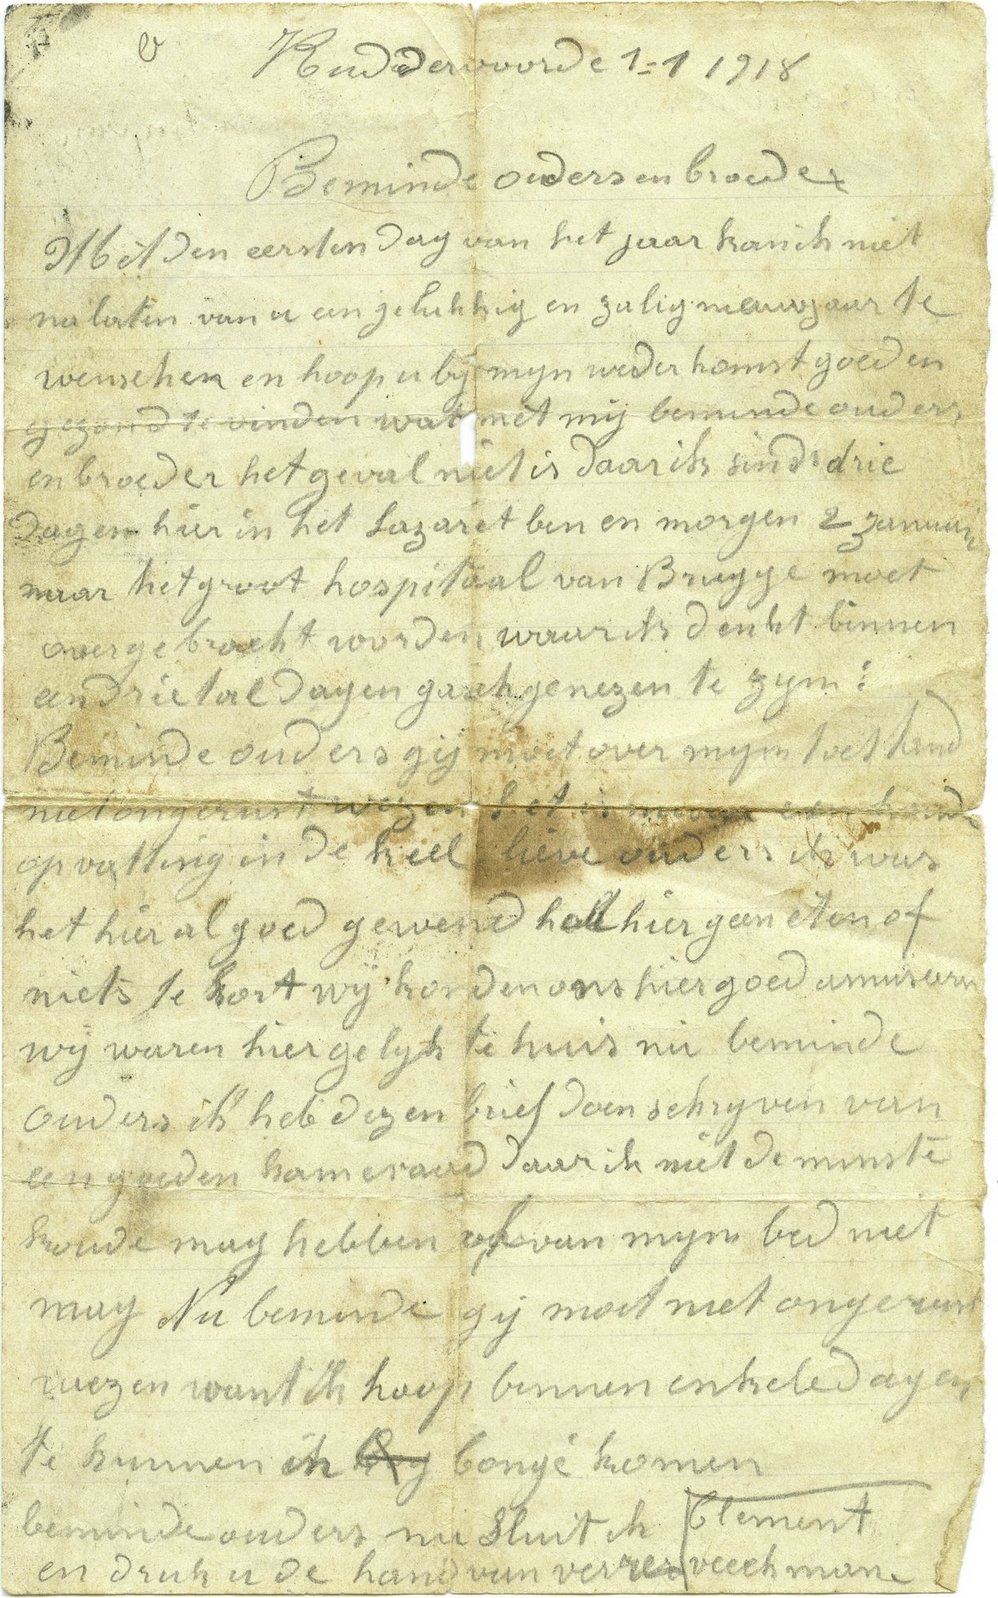 Ruddervoorde 1=1 1918
Beminde ouders en broeder
Met den eersten dag van het jaar kan ik niet
na laten van u een gelukkig en zalig nieuwjaar te
wenschen en hoop u bij myn weder komst goed en
gezond te vinden wat met mij beminde ouders
en broeder het geval niet is daar ik sinds drie
dagen hier in het Lazaret ben en morgen 2 januari
naar het groot hospitaal van Brugge moet
over gebracht worden waar ik denkt binnen
een drietal dagen gansch genezen te zyn :
Beminde ouders gij moet over myn toestand
niet ongerust wezen het is maar een koude
opvatting in de keel lieve ouders ik was
het hier al goed gewend hall hier geen eten of
niets te kort wy konden ons hier goed amuseeren
wij waren hier gelyk te huis nu beminde
ouders ik heb dezen brief doen schryven van
een goeden kameraad daar ik niet de minste
koude mag hebben of van myn bed niet
mag Nu beminde gij moet niet ongerust
wezen want ik hoop binnen enkele dagen
te kunnen in congé komen
beminde ouders nu sluit ik Clement
en druk u de hand van verre veeckman